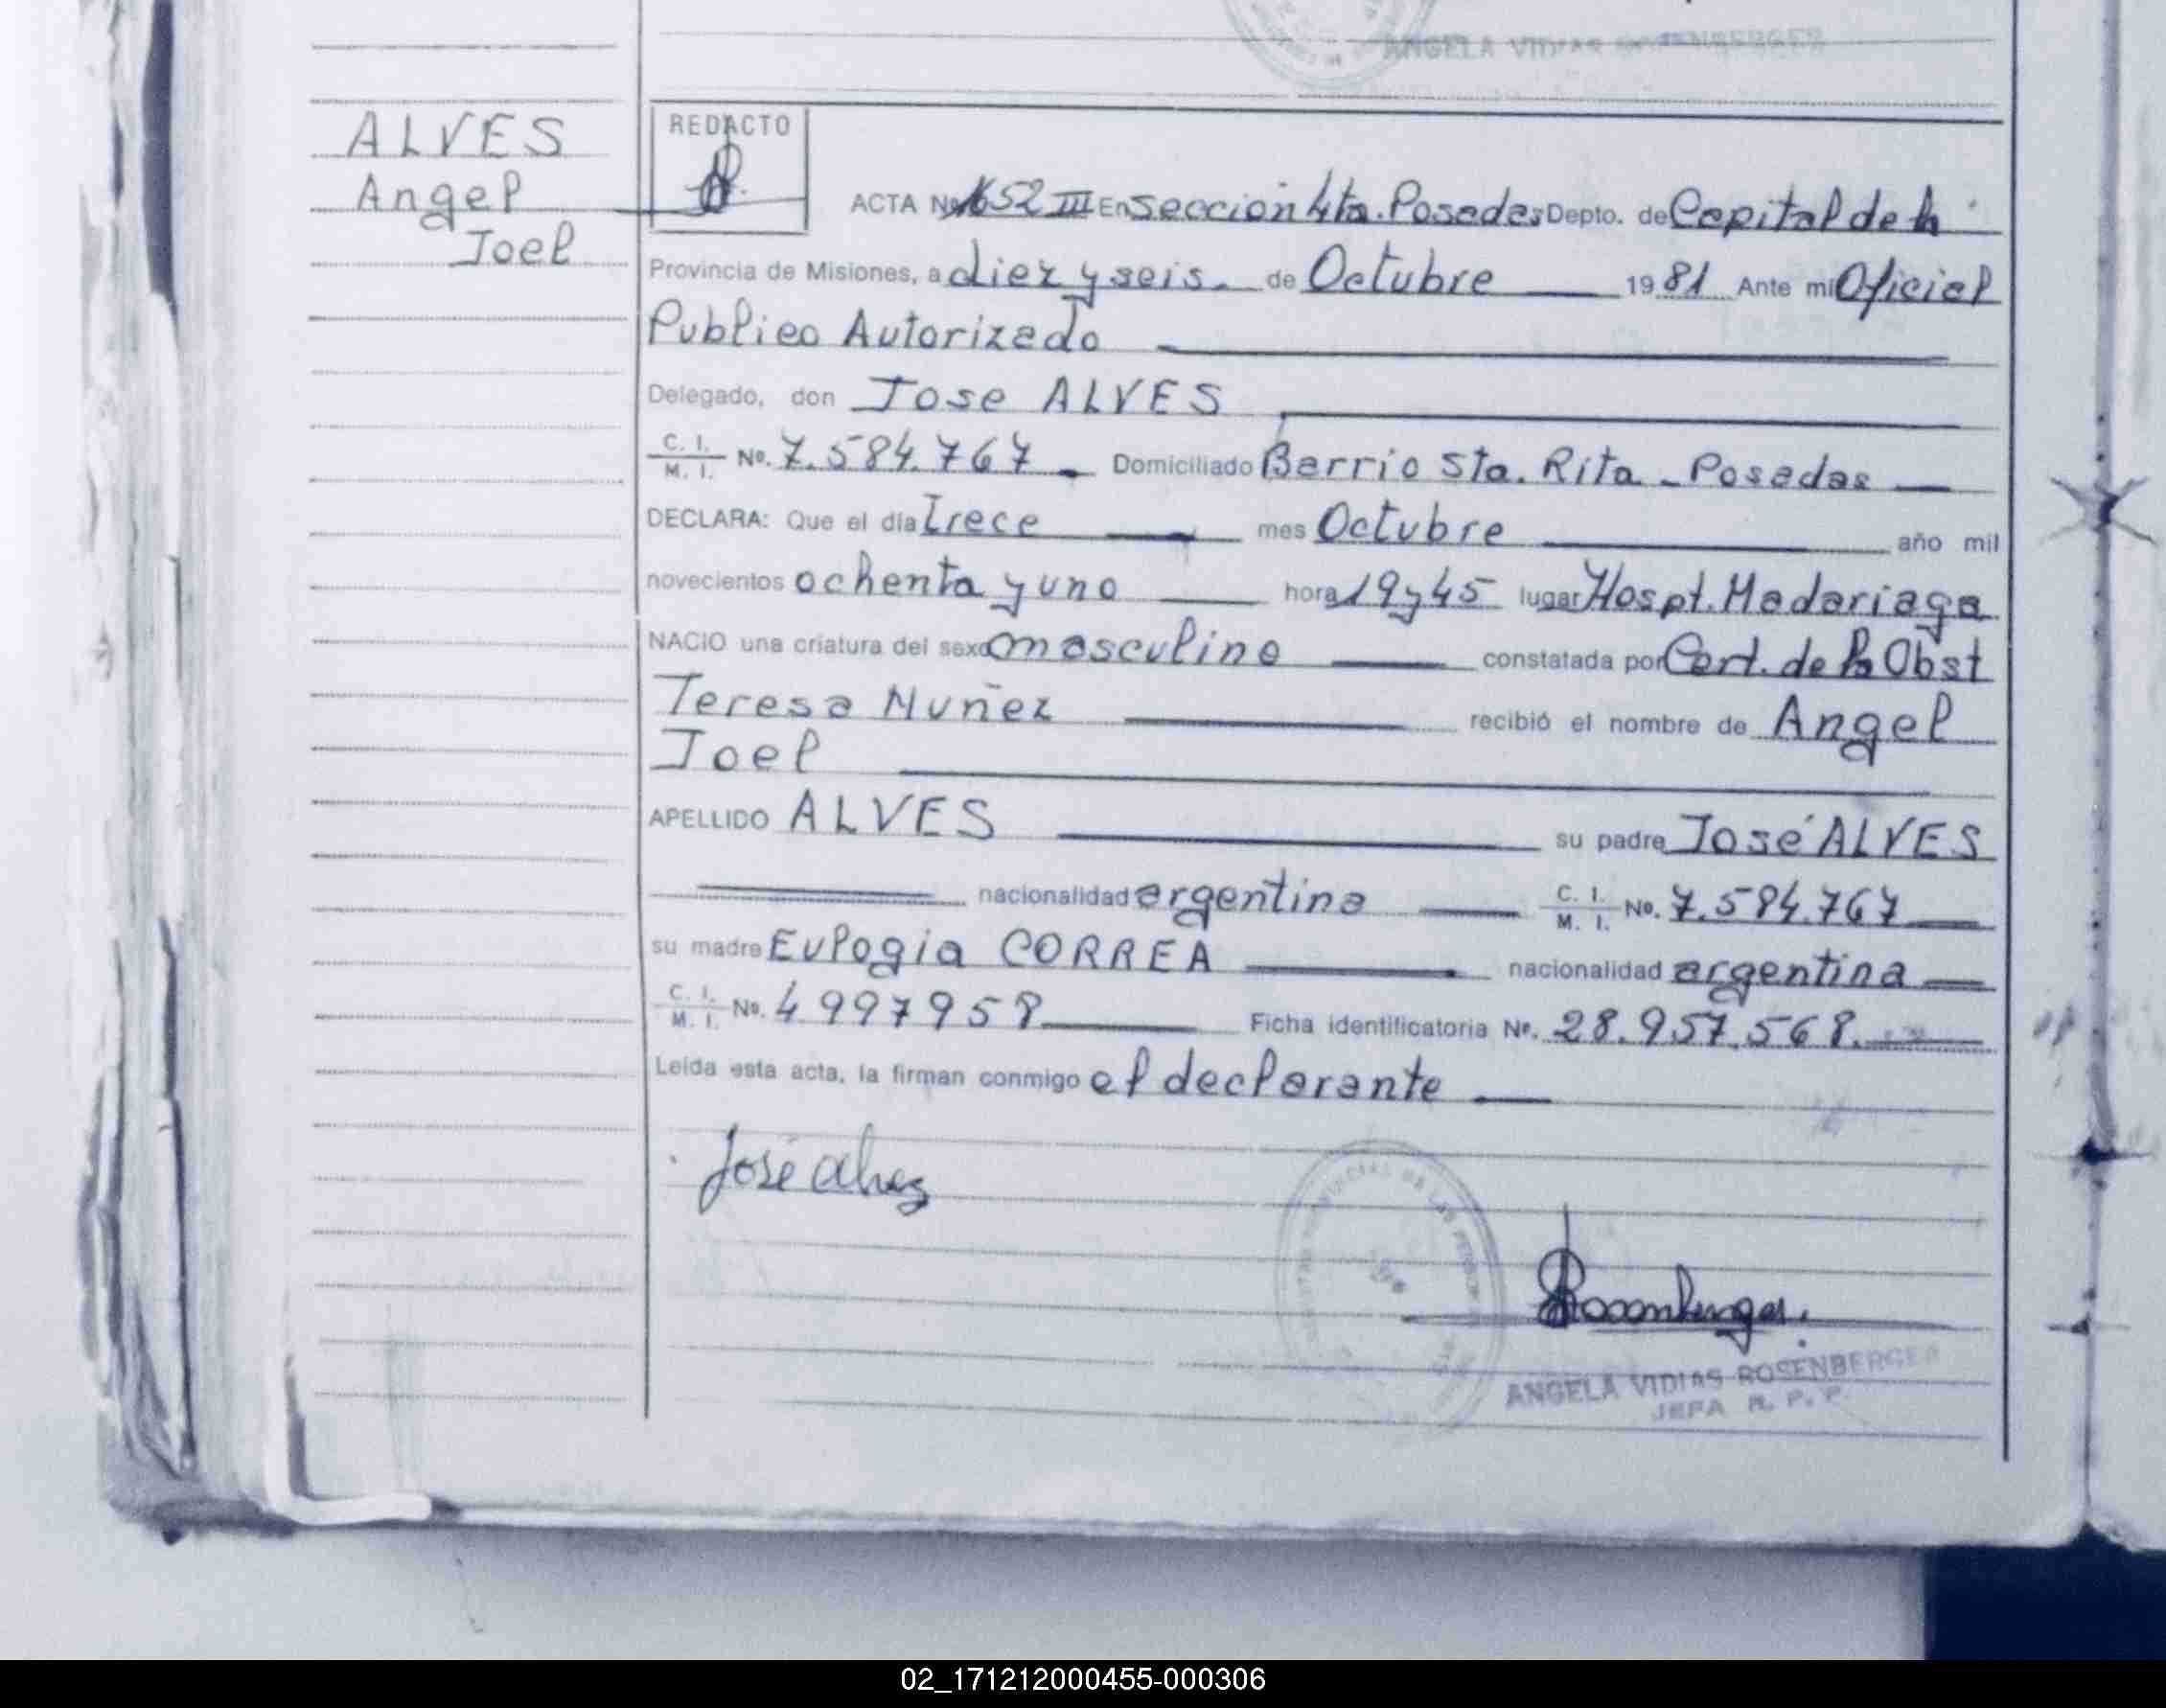 ANGELA VIDIAS ROSENBERGER
ALVES
Angel
Joel
REDACTO
ACTA No. 652 III En Sección 4ta. Posadas Depto. de Capital de la
Provincia de Misiones, a diez y seis. de Octubre 1981 Ante mi Oficial
Publico Autorizado
Delegado, don Jose ALVES
C. I. M. I. No. 7.584.767 Domiciliado Barrio Sta. Rita - Posadas
DECLARA: Que el día Trece mes Octubre año mil
novecientos ochenta y uno hora 19 y 45 lugar Hospt. Madariaga
NACIO una criatura del sexo masculino constatada por Cert. de la Obst
Teresa Nuñez recibió el nombre de Angel
Joel
APELLIDO ALVES su padre José ALVES
nacionalidad argentina C. I. M. I. No. 7.584.767
su madre Eulogia CORREA nacionalidad argentina
C. I. M. I. No. 4997958 Ficha identificatoria No. 28.957.568.
Leída esta acta, la firman conmigo el declarante
José Alves
ANGELA VIDIAS ROSENBERGER
JEFA R. P. P.
02_171212000455-000306